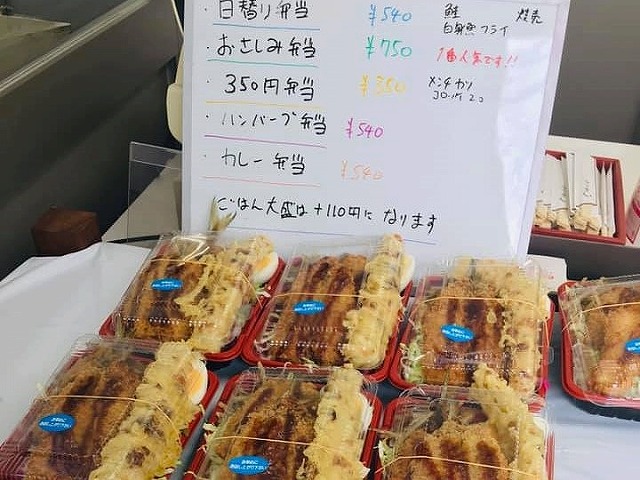 ・日替り弁当 ¥540 鮭 焼売
白身魚フライ
・おさしみ弁当 ¥750 1番人気です!!
・350円弁当 ¥350 メンチカツ
コロッケ2コ
・ハンバーグ弁当 ¥540
・カレー弁当 ¥540
ごはん大盛は+110円になります